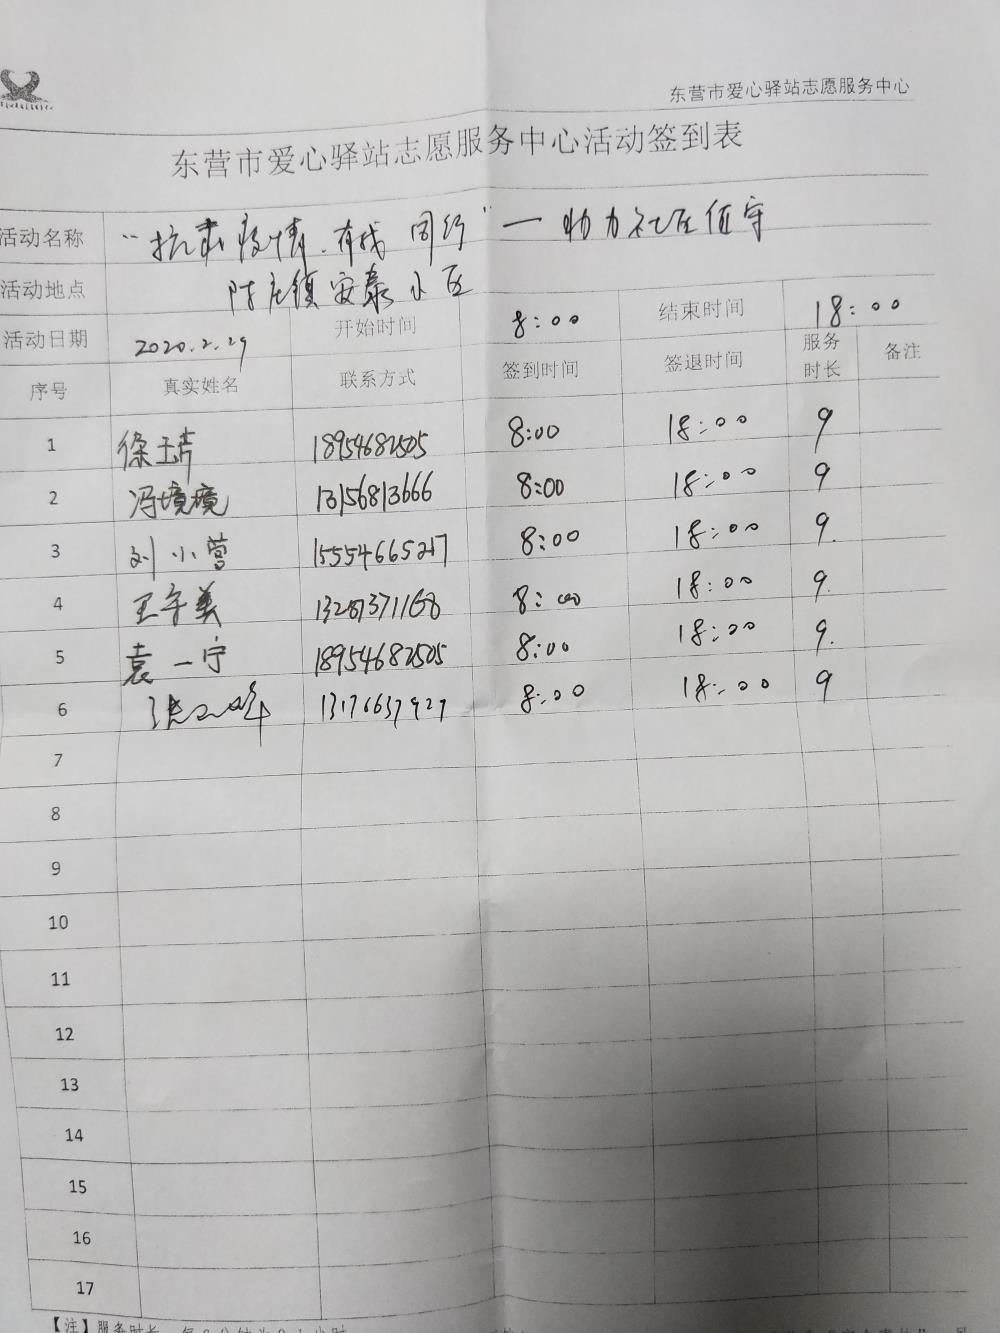 东营市爱心驿站志愿服务中心
东营市爱心驿站志愿服务中心活动签到表
活动名称 "抗击疫情.有我同行"一助力社区值守
活动地点 陈庄镇安泰小区
活动日期 2020.2.29 开始时间 8:00 结束时间 18:00
序号 真实姓名 联系方式 签到时间 签退时间 服务时长 备注
1 徐玉清 18954682505 8:00 18:00 9
2 冯境境 13156813666 8:00 18:00 9
3 刘小营 15554665217 8:00 18:00 9.
4 王守美 8:00 18:00 9.
5 袁一宁 18954682505 8:00 18:00 9.
6 13176637927 8:00 18:00 9
7
8
9
10
11
12
13
14
15
16
17
【注】服务时长